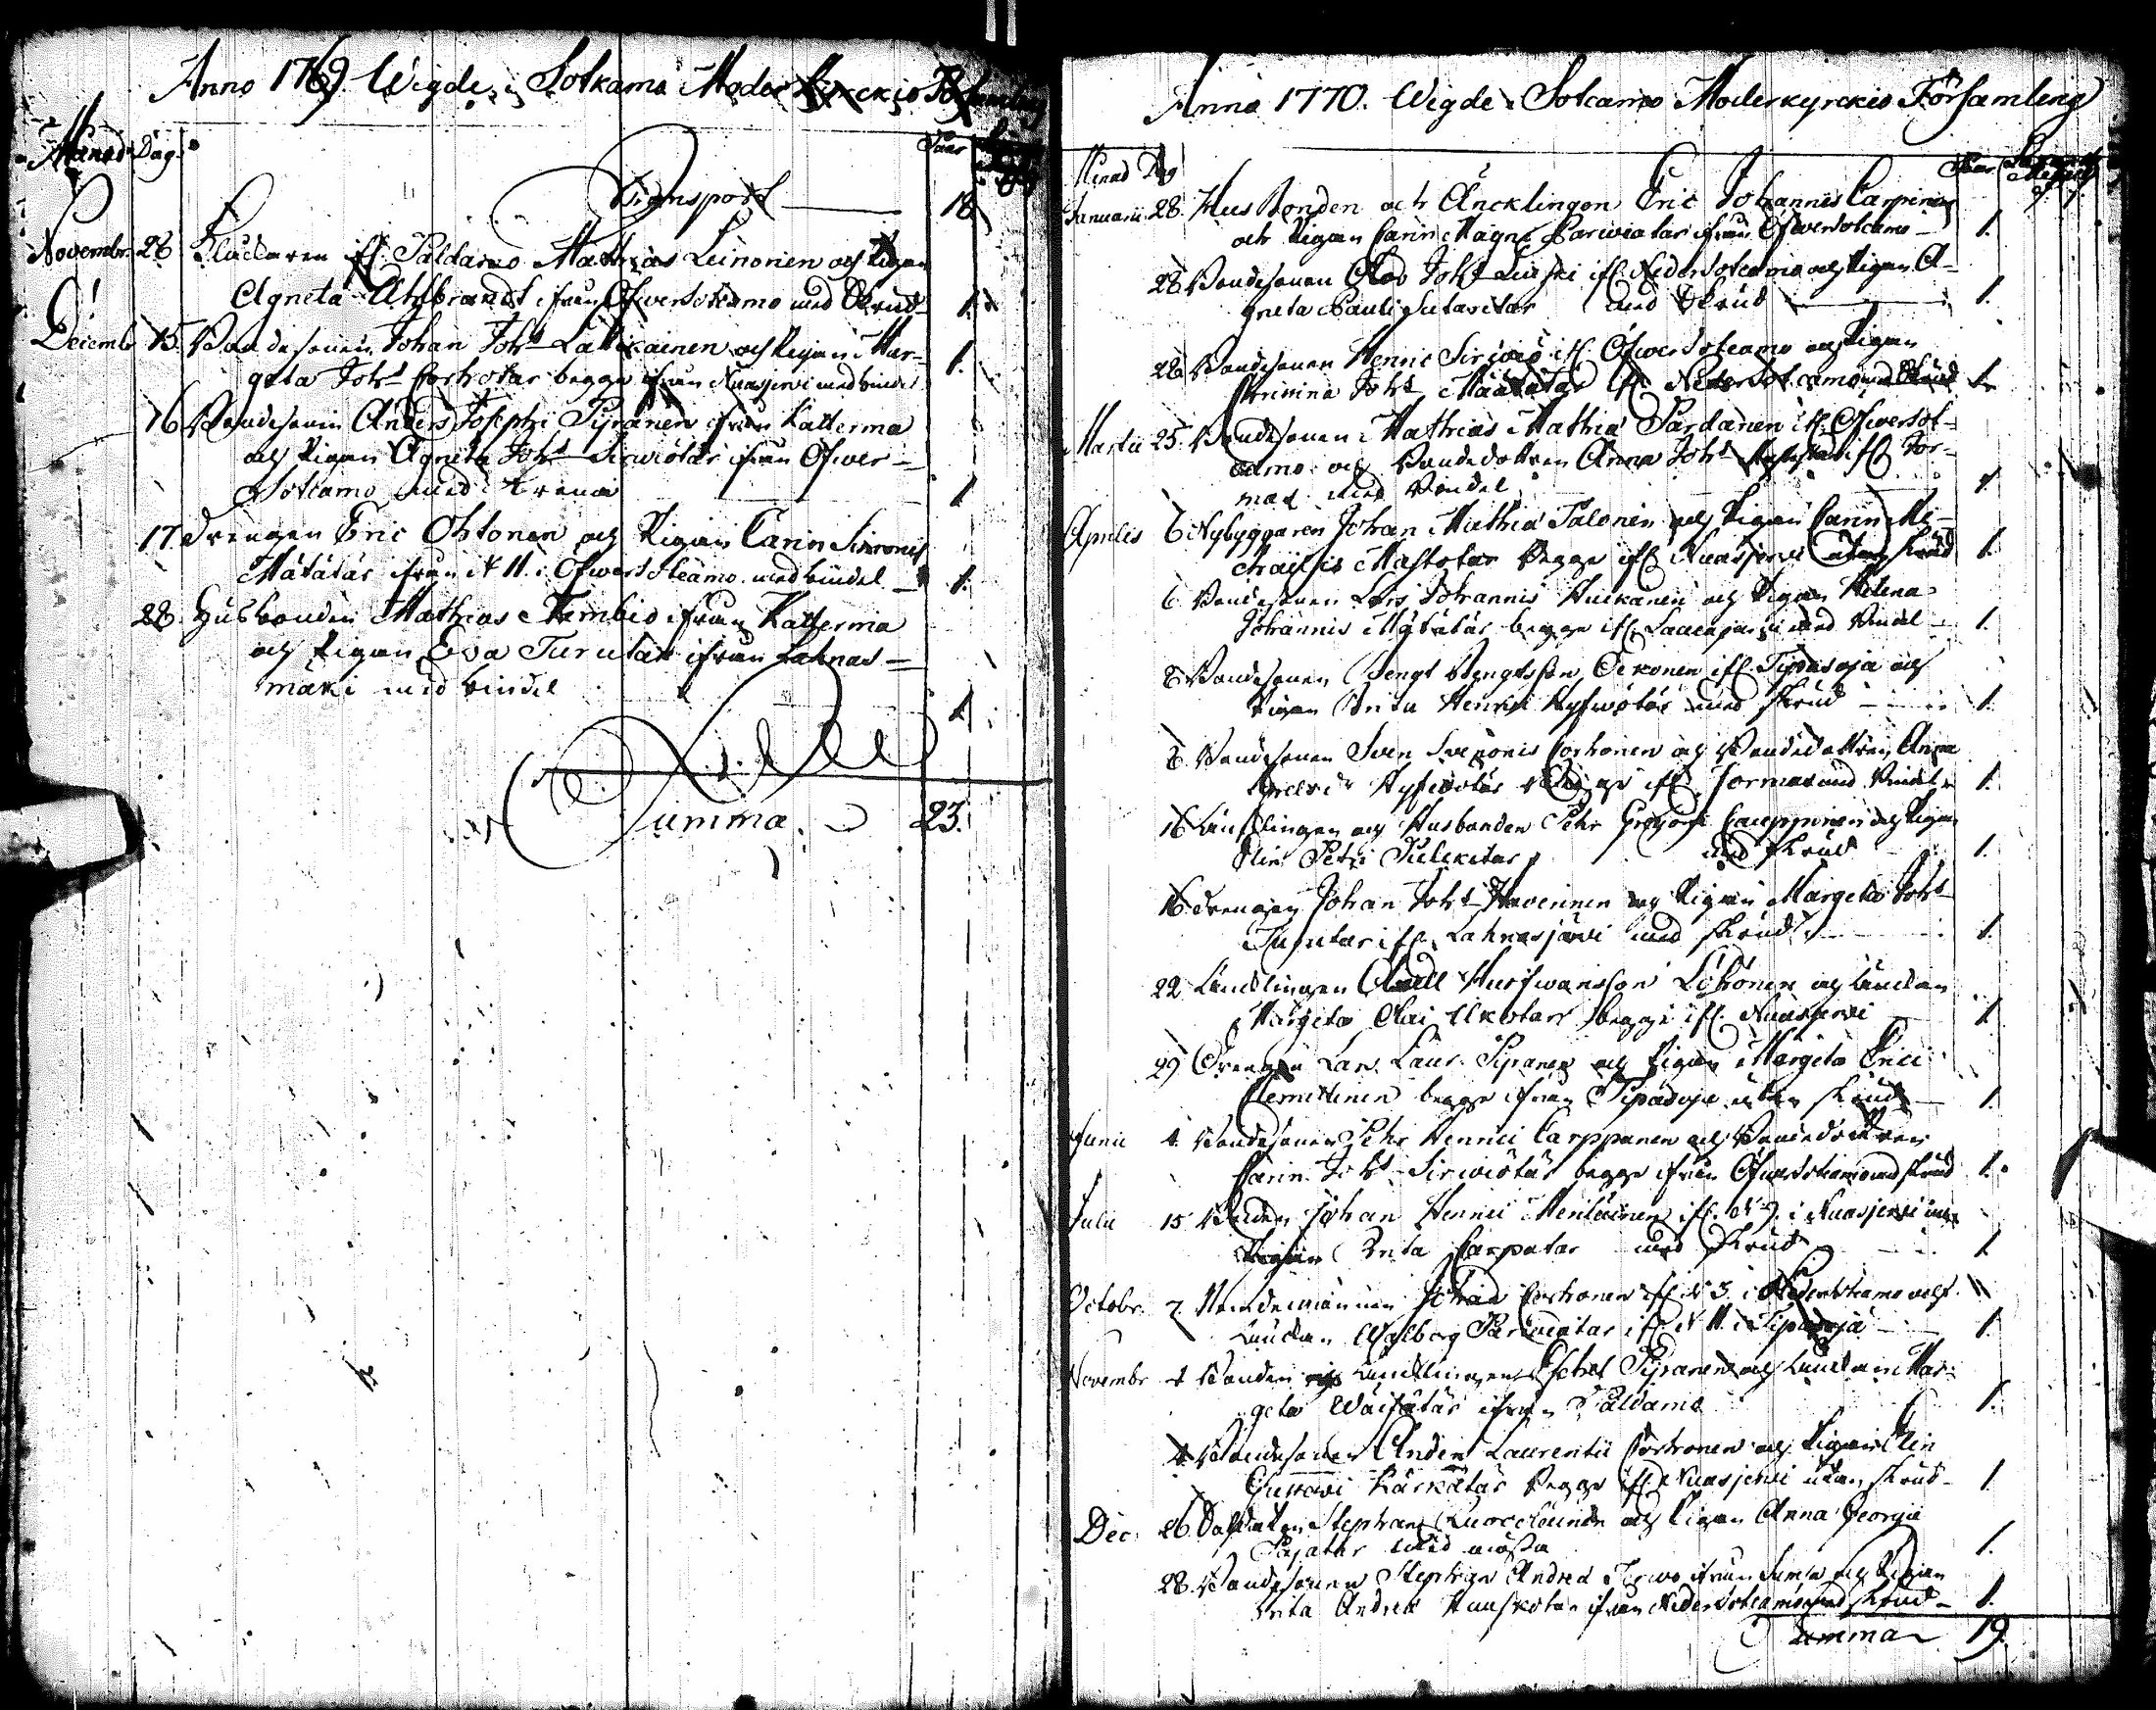 Anno 1769. Wigde i Sotkamo Moder Kyrckio Församling
Månad Dag. Paar
Transport 18
Novembr. 26 Kluckaren ifl. Paldamo Mathias Leinonen och Pigan
Agneta Ahlbrandt ifrån Öfwersotkamo med Skrud 1.
Decemb 15. Bondesonen Johan Joh:s Lattikainen och Pigan Mar-
geta Joh:s Corhotar begge ifrån Nuasjerwi med bindel 1.
16 Bondesonen Anders Josephi Pijranen ifrån Katterma
och Pigan Agneta Joh:s Sirwiötär ifrån Öfwer-
sotcamo med 1
17. Drengen Eric Ohtonen och Pigan Carin Simonis
Mätätär ifrån N 11. i Öfwersotcamo med bindel 1.
28. Husbonden Mathias Kembid ifrån Katterma
och Pigan Eva Turutar ifrån Lahnas-
mäki med bindel 1
Summa. 23.
Anno 1770. Wigde i Sotcamo Moderkyrckio Församling
Månad Dag Paar
Januarii 28. Husbonden och Äncklingen Eric Johannis Carpinen
och Pigan Carin Magni Parwiatar ifrån Öfwersotcamo 1.
28 Bondesonen Olov Joh:s Leinzki ifl. Nedersotcamo och Pigan A-
gneta Pauli Sutaritar med Skrud 1.
28 Bondesonen Henric Sirwiö ifl. Öfwersotcamo och Pigan
Christina Joh:s Määtätar ifl. Nedersotcamo med Skrud 1.
Martii 25. Bondesonen Mathias Mathiæ Pardanen ifl. Öfwersot-
camo och Bondedottren Anna Joh:s ifl. Jor-
mas med Bindel 1.
Aprilis 6 Nybyggaren Johan Mathiæ Talonen och Pigan Carin Mi-
chaelis Mastotar begge ifl. Nuasjerwi utan skrud 1.
6 Bondesonen Lars Johannis Huikanen och Pigan Helena
Johannis Mätätär begge ifl. med Bindel 1.
8 Bondesonen Bengt Bengtsson Oikonen ifl. Tipasoja och
Pigan Brita Henrici Hyfwötär med skrud 1.
8. Bondesonen Sven Svenonis Corhonen och Bondedottren Anna
Hyfwötär begge ifl. Jormas med Bindel 1.
16 Äncklingen och Husbonden Pehr Gregorii Cauppinen och Pigan
Elin Petri Piilekitar med skrud 1.
16. Drengen Johan Joh:s Hevoinen och Pigan Margeta Joh:s
Turutar ifl. Lahnasjärwi med skrud 1.
22 Äncklingen Axell Husfwansson Löhönen och Änckan
Margeta Olai Ukotar begge ifl. Nuasjerwi 1.
29 Drengen Lars Laur. Piparen och Pigan Margeta Erici
Clemettinen begge ifrån Tipasoja utan skrud 1.
Junii 4. Bondesonen Pehr Henrici Carppanen och Bondedottren
Carin Joh:s Sirwiötär begge ifrån Öfwersotcamo med skrud 1.
Julii 15 Bonden Johan Henrici Meriläinen ifl. N 9. i Nuasjerwi och
Pigan Brita Carpatar med skrud 1.
Octobr. 7. Nämdemannen Johan Corhonen ifl. N 3. i Nedersotkamo och
Änckan Walborg Parwiatar ifl. N 11. i Tipasoja 1.
Novembr 4 Bonden och Äncklingen Michel Pijranen och Änckan Mar-
geta Wäisätär ifrån Paldamo 1.
4 Bondesonen Anders Laurentii Corhonen och Pigan Elin
Gustavi Kärkätär begge ifl. Nuasjerwi utan skrud 1.
Dec: 26 Soldaten Stephan och Pigan Anna Georgii
Pajatar med mössa 1.
28. Bondesonen Stephan Andreæ Torwo ifrån Sumsa och Pigan
Brita Andreæ Hauskotar ifrån Nedersotcamo med skrud 1.
Summa 19.